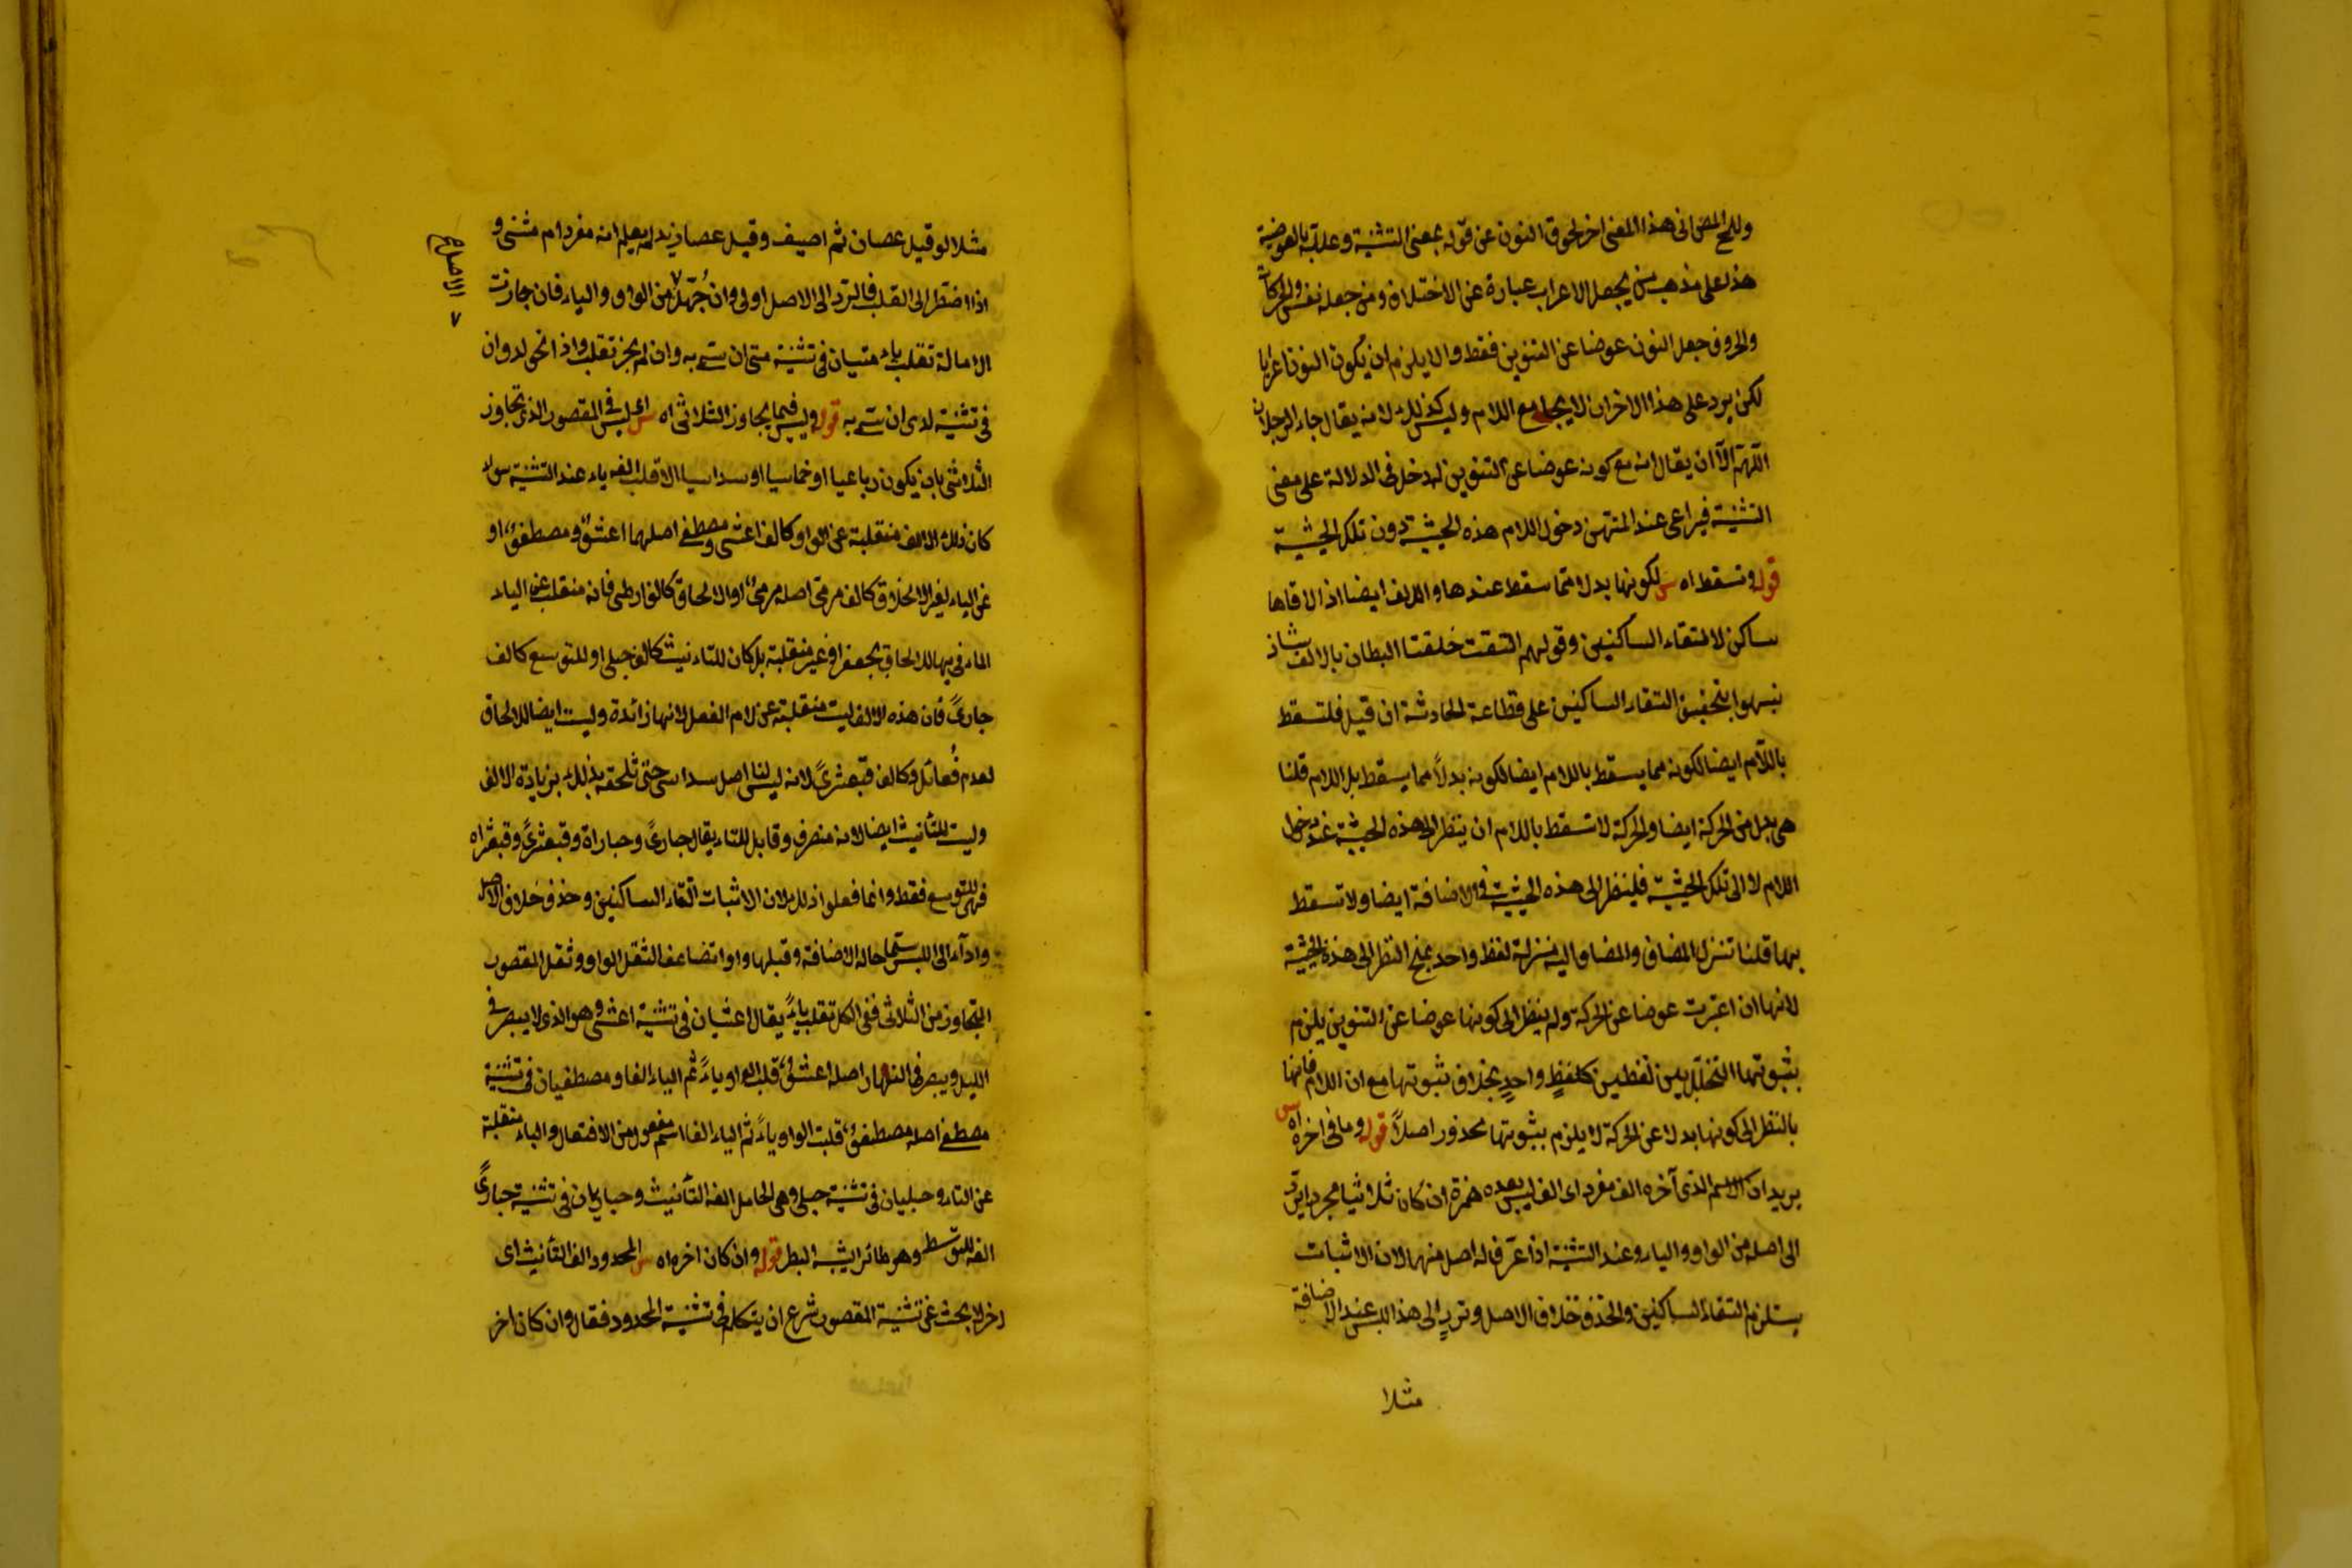 وللمح المص الى هذا المعنى اخر لحوق النون عن قوله بمعنى التثنية وعلله بالعوضية
هذا على مذهب من يجعل الاعراب عبارة عن الاختلاف ومن جعله نفس الحركات
والحروف جعل النون عوضا عن التنوين فقط والا يلزم ان يكون النون اعرابا
لكن يرد على هذا الاخران لا يجامع اللام وليس كذلك لانه يقال جاء الرجلان
اللهم الا ان يقال انه مع كونه عوضا عن التنوين له دخل فى الدلالة على معنى
التثنية فيراعى عند دخول اللام هذه الحيثية دون تلك الحيثية
قوله وتسقط اه س لكونها بدلا مما سقط عندها والالف ايضا اذا لاقاها
ساكن لالتقاء الساكنين وقولهم التقت حلقتا البطان بالالف شاذ
نبهوا بتحقيق التقاء الساكنين على فظاعة الحادثة ان قيل فلتسقط
باللام ايضا لكونه مما يسقط باللام ايضا لكونه بدلا مما يسقط بلا اللام قلنا
هى بدل من الحركة ايضا والحركة لا تسقط باللام ان ينظر الى هذه الحيثية عند دخول
اللام لا الى تلك الحيثية فلينظر الى هذه الحيثية فى الاضافة ايضا ولا تسقط
بها قلنا تنزل المضاف والمضاف اليه منزلة لفظ واحد يمنع النظر الى هذه الحيثية
لانها ان اعتبرت عوضا عن الحركة ولم ينظر الى كونها عوضا عن التنوين يلزم
بثبوتها التخلل بين لفظين كلفظ واحد بخلاف ثبوتها مع ان اللام فانها
بالنظر الى كونها بدلا عن الحركة لا يلزم بثبوتها محذور اصلا قوله وما فى اخره اه س
يريد ان الاسم الذى آخره الف مفرد اى الف ليس بعده همزة ان كان ثلاثيا مجردا يرد
الى اصله من الواو والياء وعند التثنية اذا عرف له اصل منهما لان الاثبات
يستلزم التقاء الساكنين والحذف خلاف الاصل وترد الى هذا اللبس عند الاضافة
مثلا
مثلا لو قيل عصان ثم اضيف وقيل عصا زيد لم يعلم انه مفرد ام مثنى و
اذا اضطر الى القلب فالرد الى الاصل اولى وان جهل من الواو والياء فان جازت
الامالة تقلب ياء متيان فى تثنية متى ان سمى به وان لم يجز تقلب واوا نحو لدوان
فى تثنية لدى ان سمى به قوله وليس فيما يجاوز الثلاثى اه س اى ليس فى المقصور الذى تجاوز
الثلاثى بان يكون رباعيا او خماسيا او سداسيا الا قلب الفه ياء عند التثنية سواء
كان ذلك الالف منقلبة عن الواو كالف اعشى ومصطفى اصلهما اعشو ومصطفو او
عن الياء لغير الالحاق كالف مرمى اصله مرمى او الالحاق كالف ارطى فانه منقلب عن الياء
المأتى بها للالحاق بجعفر او غير منقلبة بل كان للتأنيث كالف حبلى او للتوسع كالف
حبارى فان هذه الالف ليست منقلبة عن لام الفعل لانها زائدة وليست ايضا للالحاق
لعدم فعائل وكالف قبعثرى لانه ليس لنا اصل سداسى حتى تلحقه بذلك بزيادة الالف
وليست للتأنيث ايضا لانه منصرف وقابل للتاء يقال حبارى وحباراة وقبعثرى وقبعثراه
فهى للتوسع فقط وانما فعلوا ذلك لان الاثبات التقاء الساكنين وحذف خلاف الاصل
واداء الى اللبس سيما حالة الاضافة وقبلها واوا تضاعف الثقل الواو وثقل المقصور
المتجاوز من الثلاثى ففى الكل تقلب ياء يقال اعشيان فى تثنية اعشى وهو الذى لا يبصر فى
الليل ويبصر فى النهار اصله اعشو قلب الواو ياء ثم الياء الفا ومصطفيان فى تثنية
مصطفى اصله مصطفو قلبت الواو ياء ثم الياء الفا اسم مفعول من الافتعال والطاء منقلبة
عن التاء وحبليان فى تثنية حبلى وهى الحامل الفه التأنيث وحباريان فى تثنية حبارى
الفه للتوسط وهو طائر يشبه البط قوله وان كان اخره اه س الممدود الف التأنيث اى
اخر لا بحث عن تثنية المقصور شرع ان يتكلم فى تثنية الممدود فقال وان كان اخر
الاصل صح